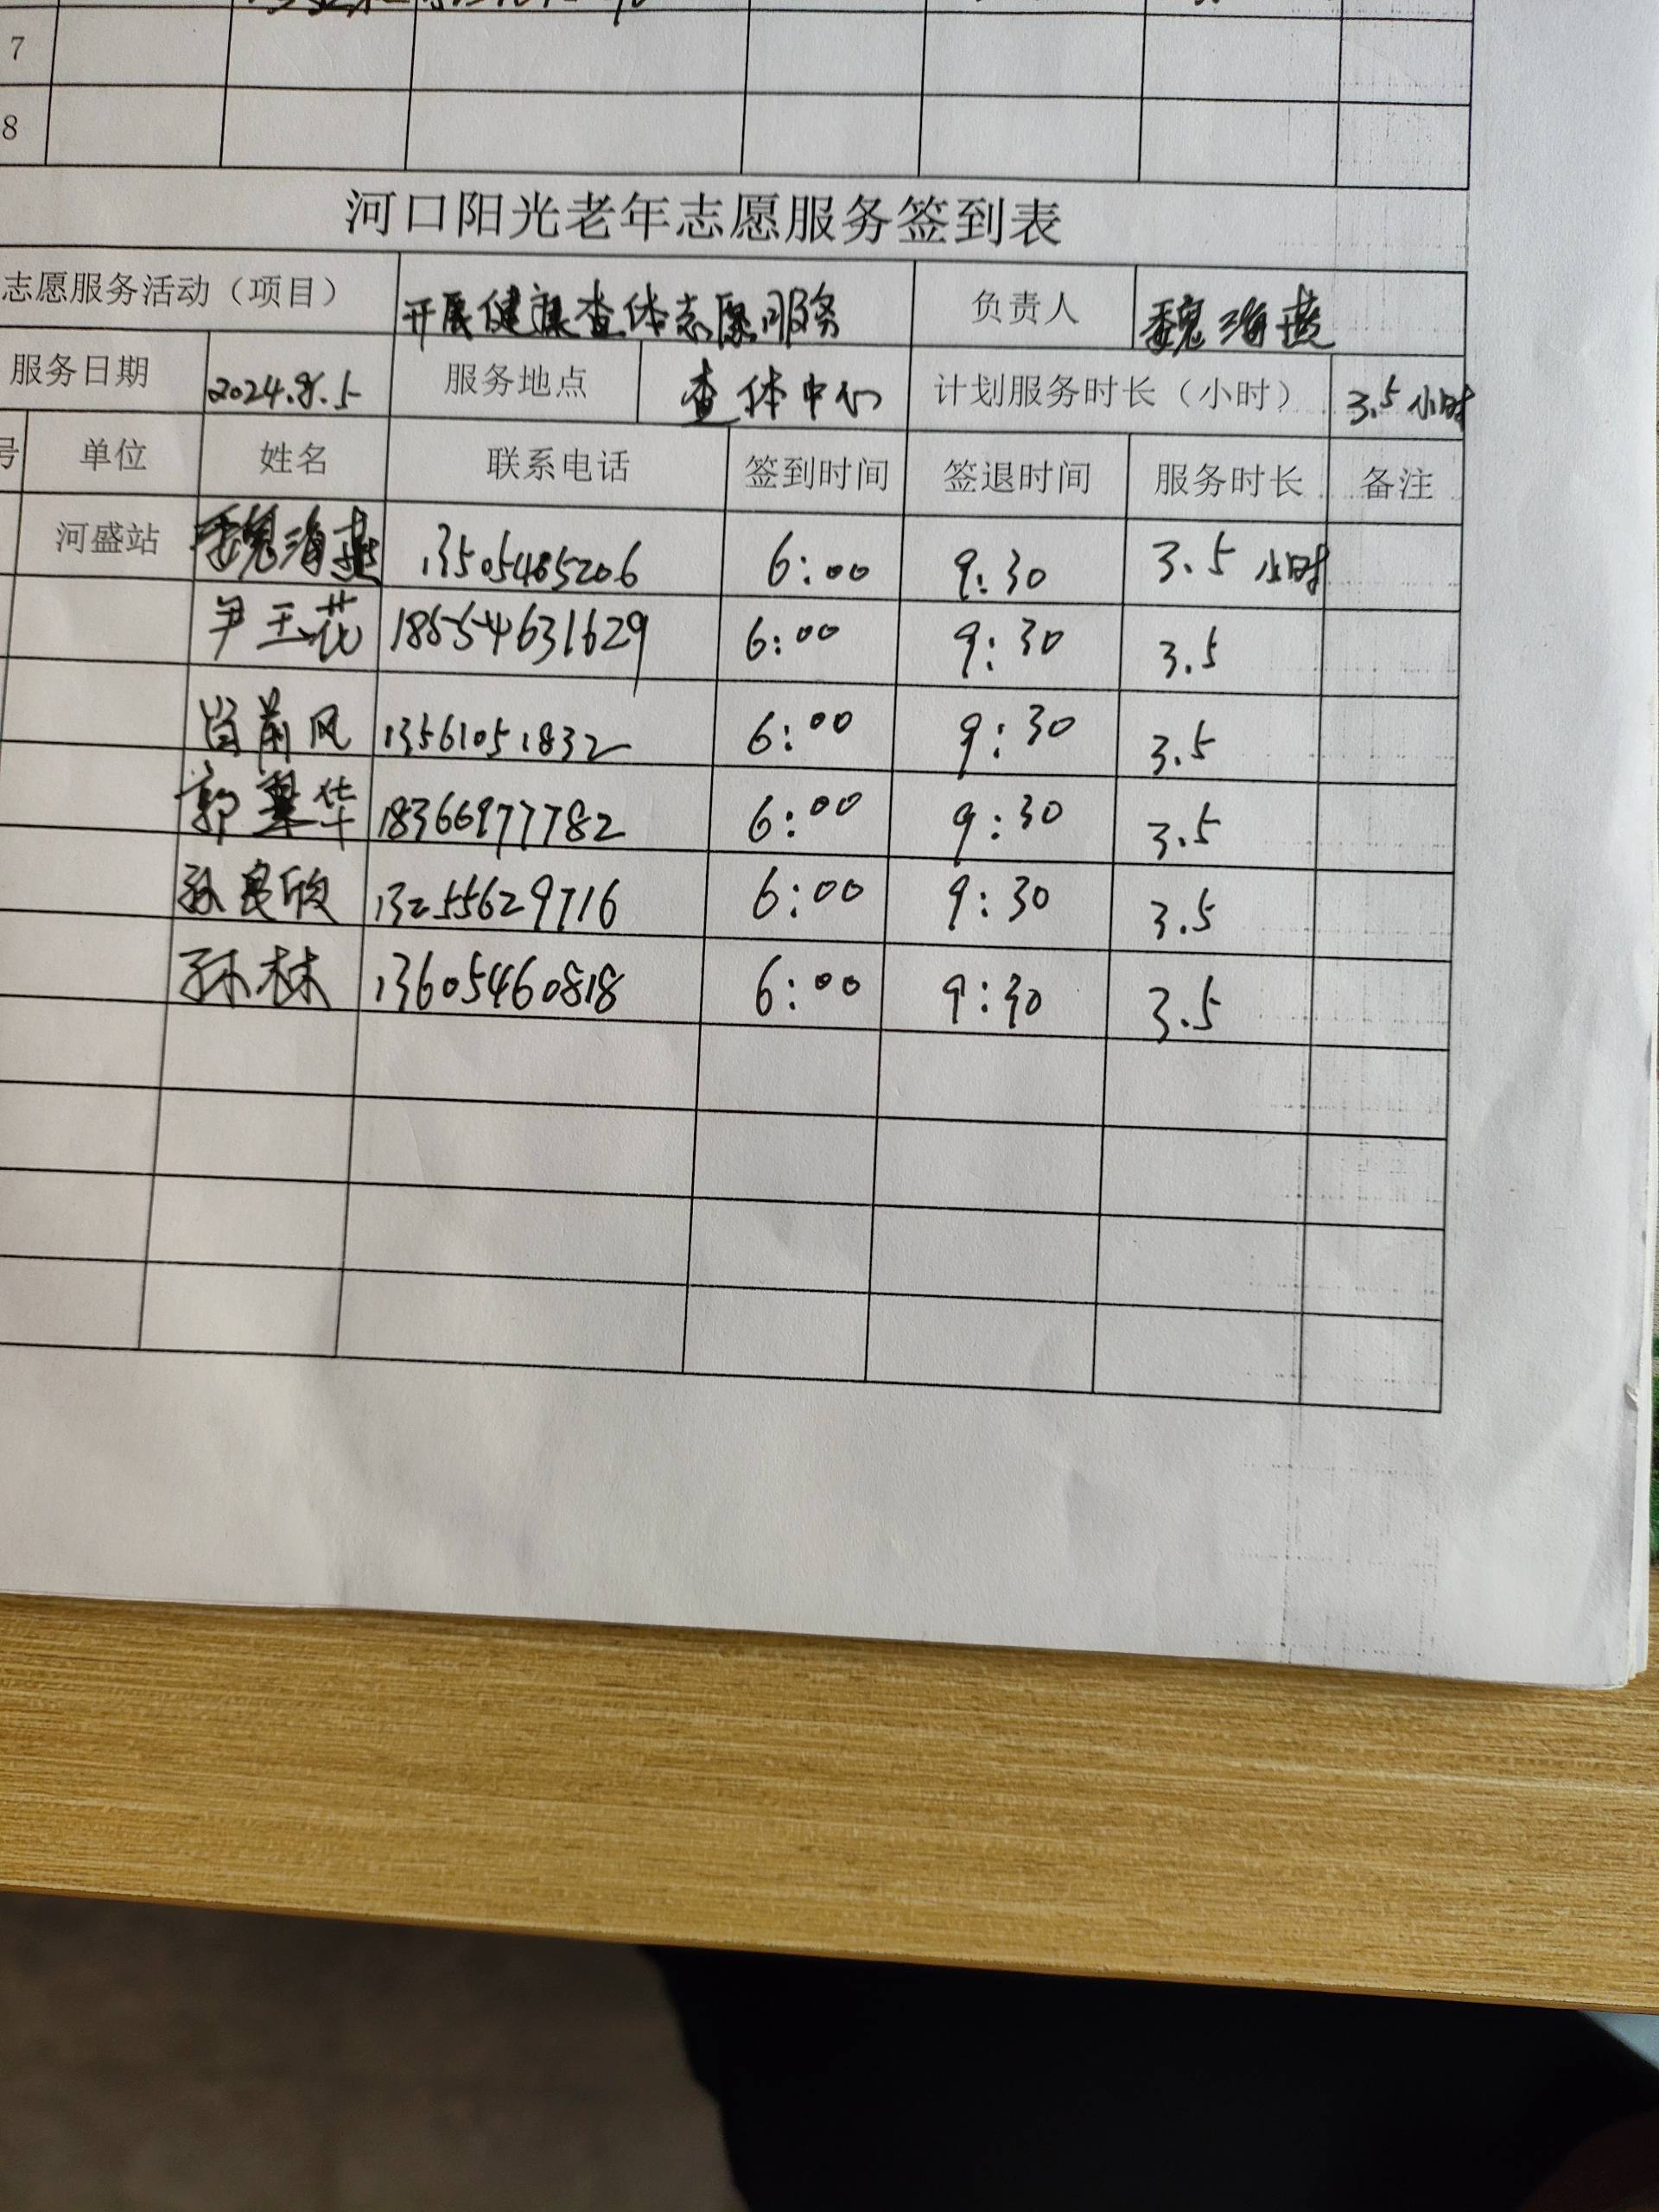 7
8
河口阳光老年志愿服务签到表
志愿服务活动（项目） 开展健康查体志愿服务 负责人 魏海燕
服务日期 2024.8.5 服务地点 查体中心 计划服务时长（小时） 3.5小时
号 单位 姓名 联系电话 签到时间 签退时间 服务时长 备注
河盛站 魏海燕 13505485206 6:00 9:30 3.5小时
尹玉花 18654631629 6:00 9:30 3.5
风 13561051832 6:00 9:30 3.5
郭翠华 18366977782 6:00 9:30 3.5
孙良欣 13255629716 6:00 9:30 3.5
孙林 13605460818 6:00 9:30 3.5